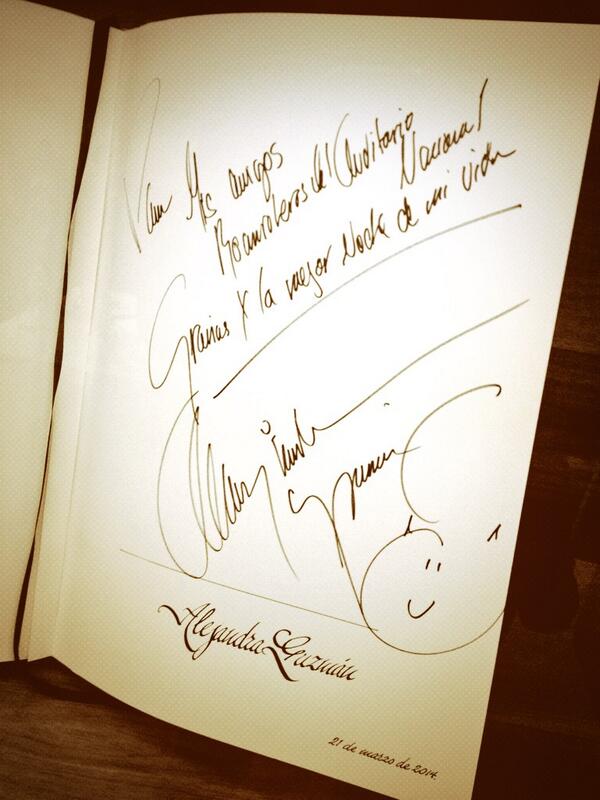 Para Mis amigos
Rocanroleros del Auditorio
Nacional
Gracias X la mejor Noche de mi vida
Alejandra
Guzmán
Alejandra Guzmán
21 de marzo de 2014.